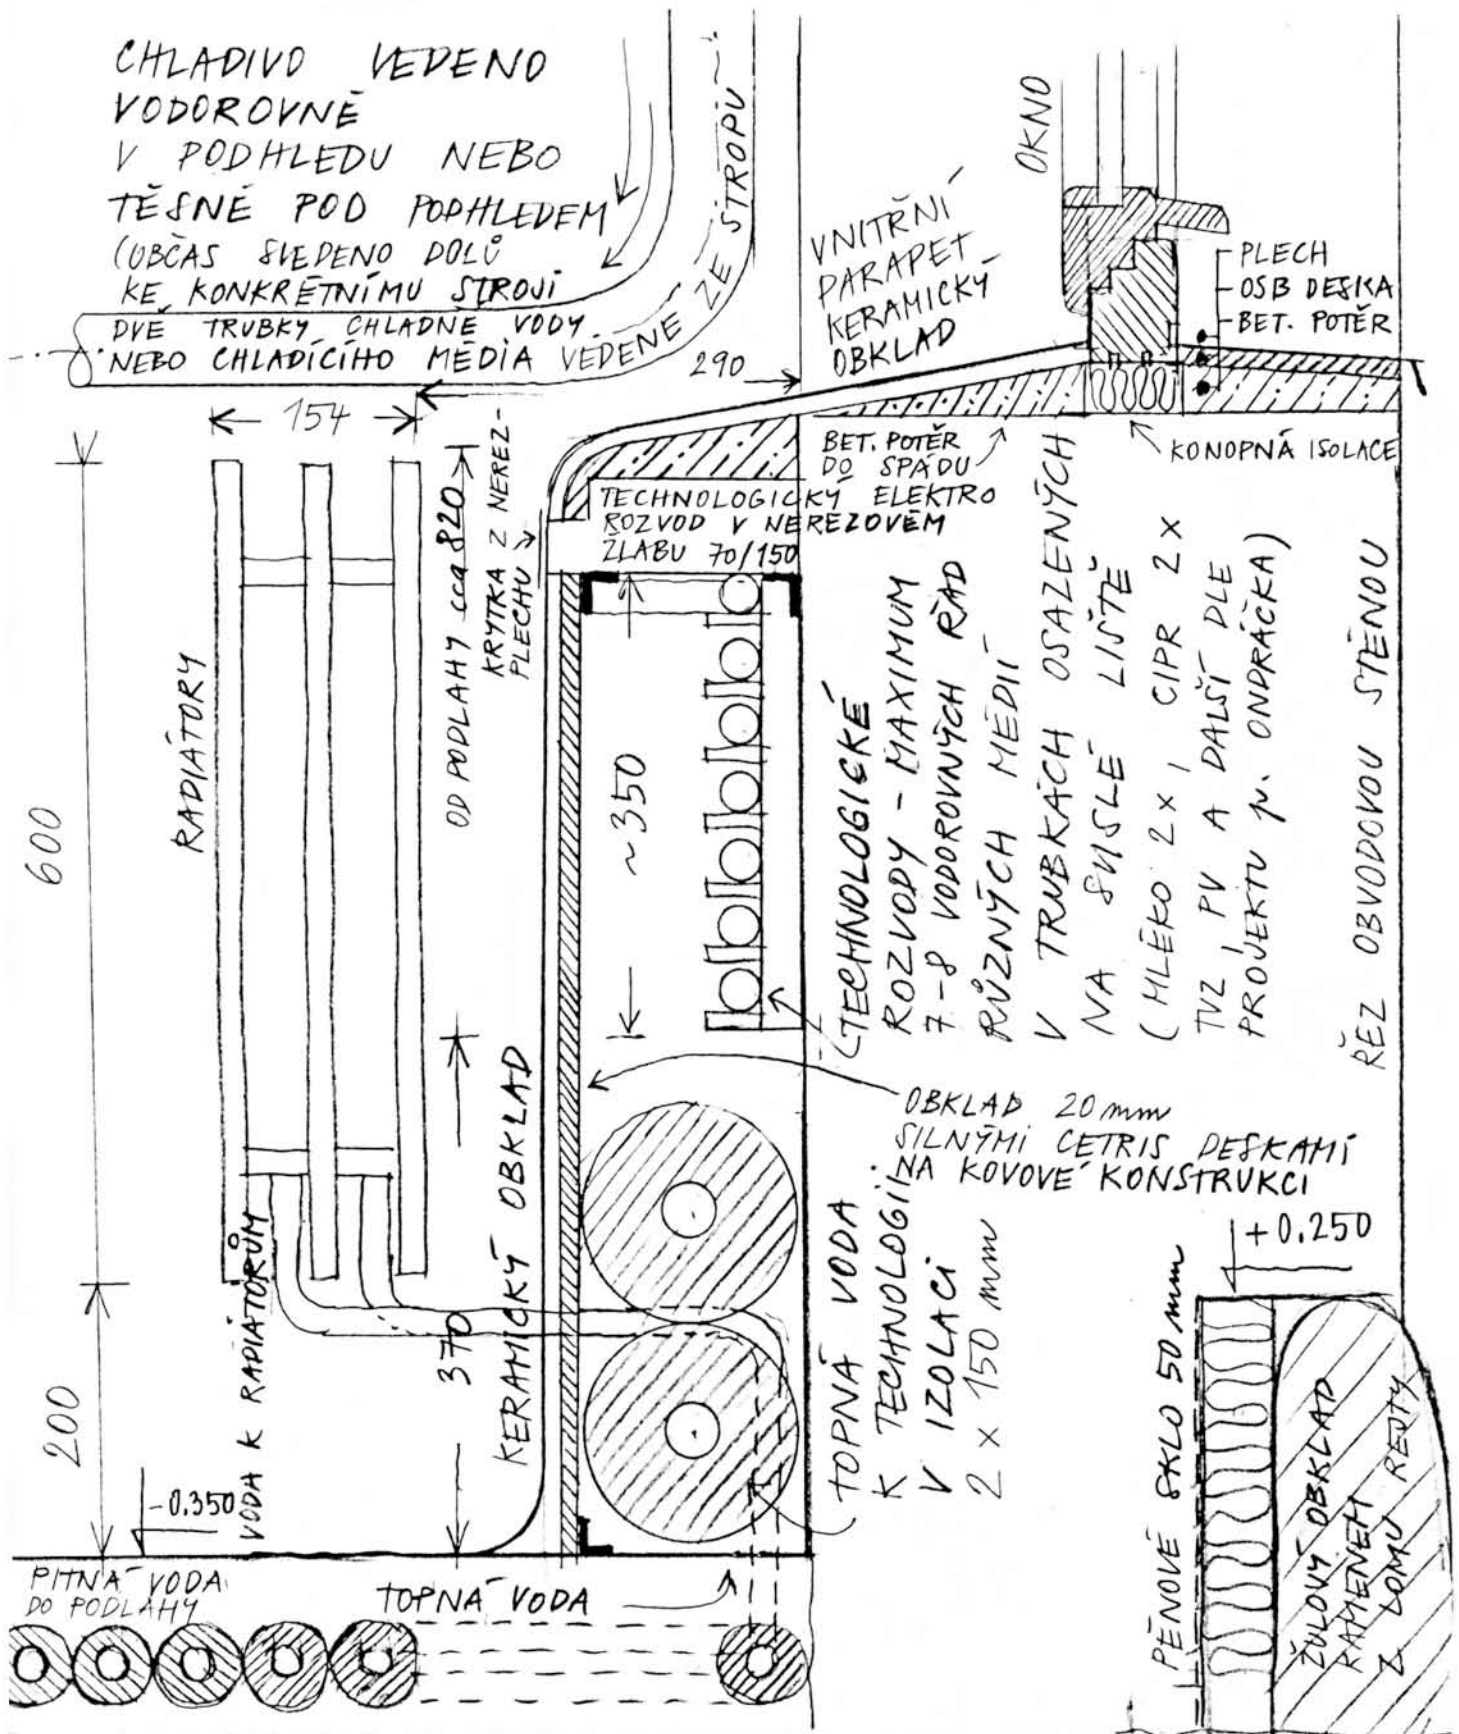 CHLADIVO VEDENO
VODOROVNĚ
V PODHLEDU NEBO
TĚSNĚ POD PODHLEDEM
(OBČAS SVEDENO DOLŮ
KE KONKRÉTNÍMU STROJI
DVĚ TRUBKY CHLADNÉ VODY
NEBO CHLADÍCÍHO MÉDIA VEDENÉ ZE STROPU
290
154
VNITŘNÍ
PARAPET
KERAMICKÝ
OBKLAD
OKNO
PLECH
OSB DESKA
BET. POTĚR
BET. POTĚR
DO SPÁDU
KONOPNÁ ISOLACE
TECHNOLOGICKÝ ELEKTRO
ROZVOD V NEREZOVÉM
ŽLABU 70/150
KRYTKA Z NEREZ-
PLECHU
OD PODLAHY cca 820
RADIÁTORY
600
~350
TECHNOLOGICKÉ
ROZVODY - MAXIMUM
7-8 VODOROVNÝCH ŘAD
RŮZNÝCH MÉDIÍ
V TRUBKÁCH OSAZENÝCH
NA SVISLÉ LIŠTĚ
(MLÉKO 2x, CIPR 2x
TVZ, PV A DALŠÍ DLE
PROJEKTU p. ONDRÁČKA)
ŘEZ OBVODOVOU STĚNOU
OBKLAD 20 mm
SILNÝMI CETRIS DESKAMI
NA KOVOVÉ KONSTRUKCI
KERAMICKÝ OBKLAD
VODA K RADIÁTORŮM
370
200
-0.350
TOPNÁ VODA
K TECHNOLOGII
V IZOLACI
2 x 150 mm
+0.250
PĚNOVÉ SKLO 50 mm
ŽULOVÝ OBKLAD
KAMENEM
Z LOMU
PITNÁ VODA
DO PODLAHY
TOPNÁ VODA